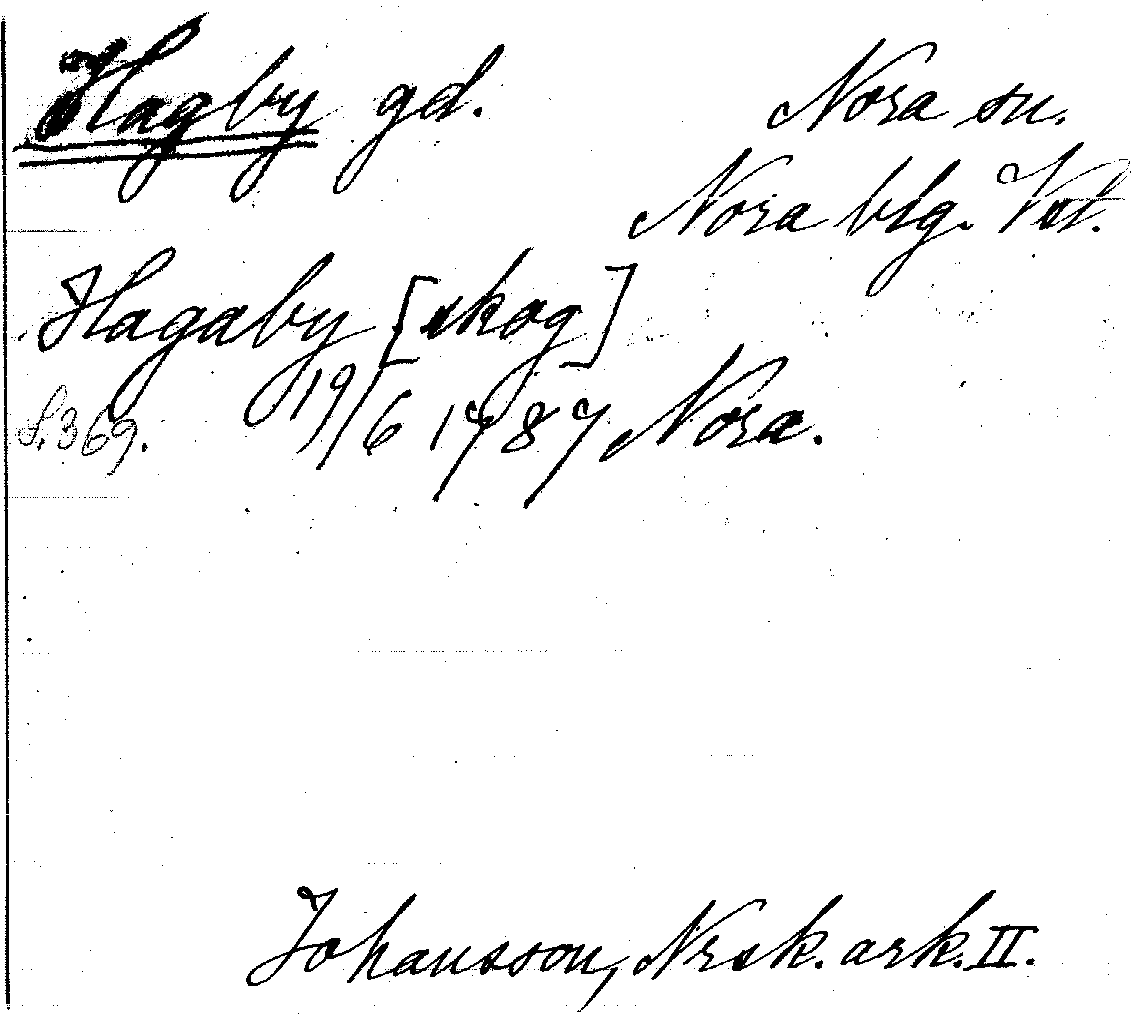 Hagby gd. Nora sn.
Nora blg. Vstl.
Hagaby [skog]
19/6 1787 Nora.
S. 369.
Johansson, Nrsk. ark. II.